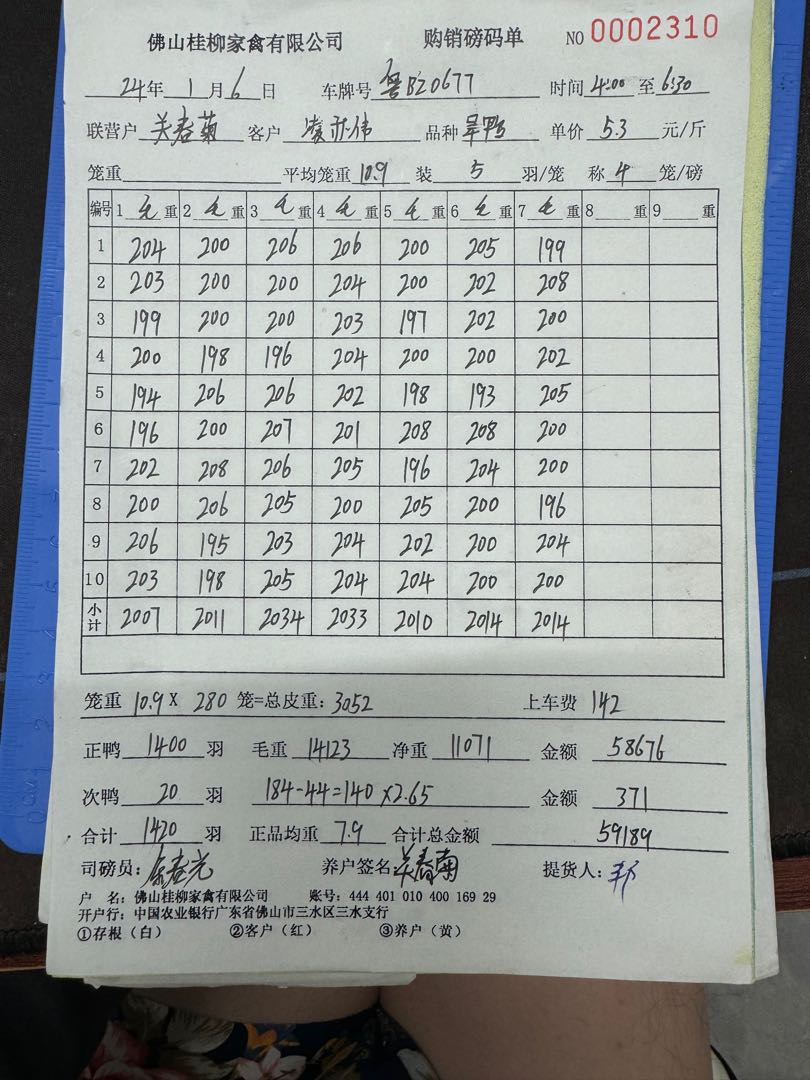 佛山桂柳家禽有限公司 购销磅码单 NO 0002310
24年 1月 6日 车牌号 粤BZ0677 时间 4:00 至 6:30
联营户 关春菊 客户 凌亦伟 品种 旱鸭 单价 5.3 元/斤
笼重 平均笼重 10.9 装 5 羽/笼 称 4 笼/磅
编号 1 毛 重 2 毛 重 3 毛 重 4 毛 重 5 毛 重 6 毛 重 7 毛 重 8 重 9 重
1 204 200 206 206 200 205 199
2 203 200 200 204 200 202 208
3 199 200 200 203 197 202 200
4 200 198 196 204 200 200 202
5 194 206 206 202 198 193 205
6 196 200 207 201 208 208 200
7 202 208 206 205 196 204 200
8 200 206 205 200 205 200 196
9 206 195 203 204 202 200 204
10 203 198 205 204 204 200 200
小计 2007 2011 2034 2033 2010 2014 2014
笼重 10.9 X 280 笼=总皮重: 3052 上车费 142
正鸭 1400 羽 毛重 14123 净重 11071 金额 58676
次鸭 20 羽 184-44=140×2.65 金额 371
合计 1420 羽 正品均重 7.9 合计总金额 59189
司磅员: 养户签名: 关春菊 提货人:
户 名: 佛山桂柳家禽有限公司 账号: 444 401 010 400 169 29
开户行: 中国农业银行广东省佛山市三水区三水支行
①存根（白） ②客户（红） ③养户（黄）